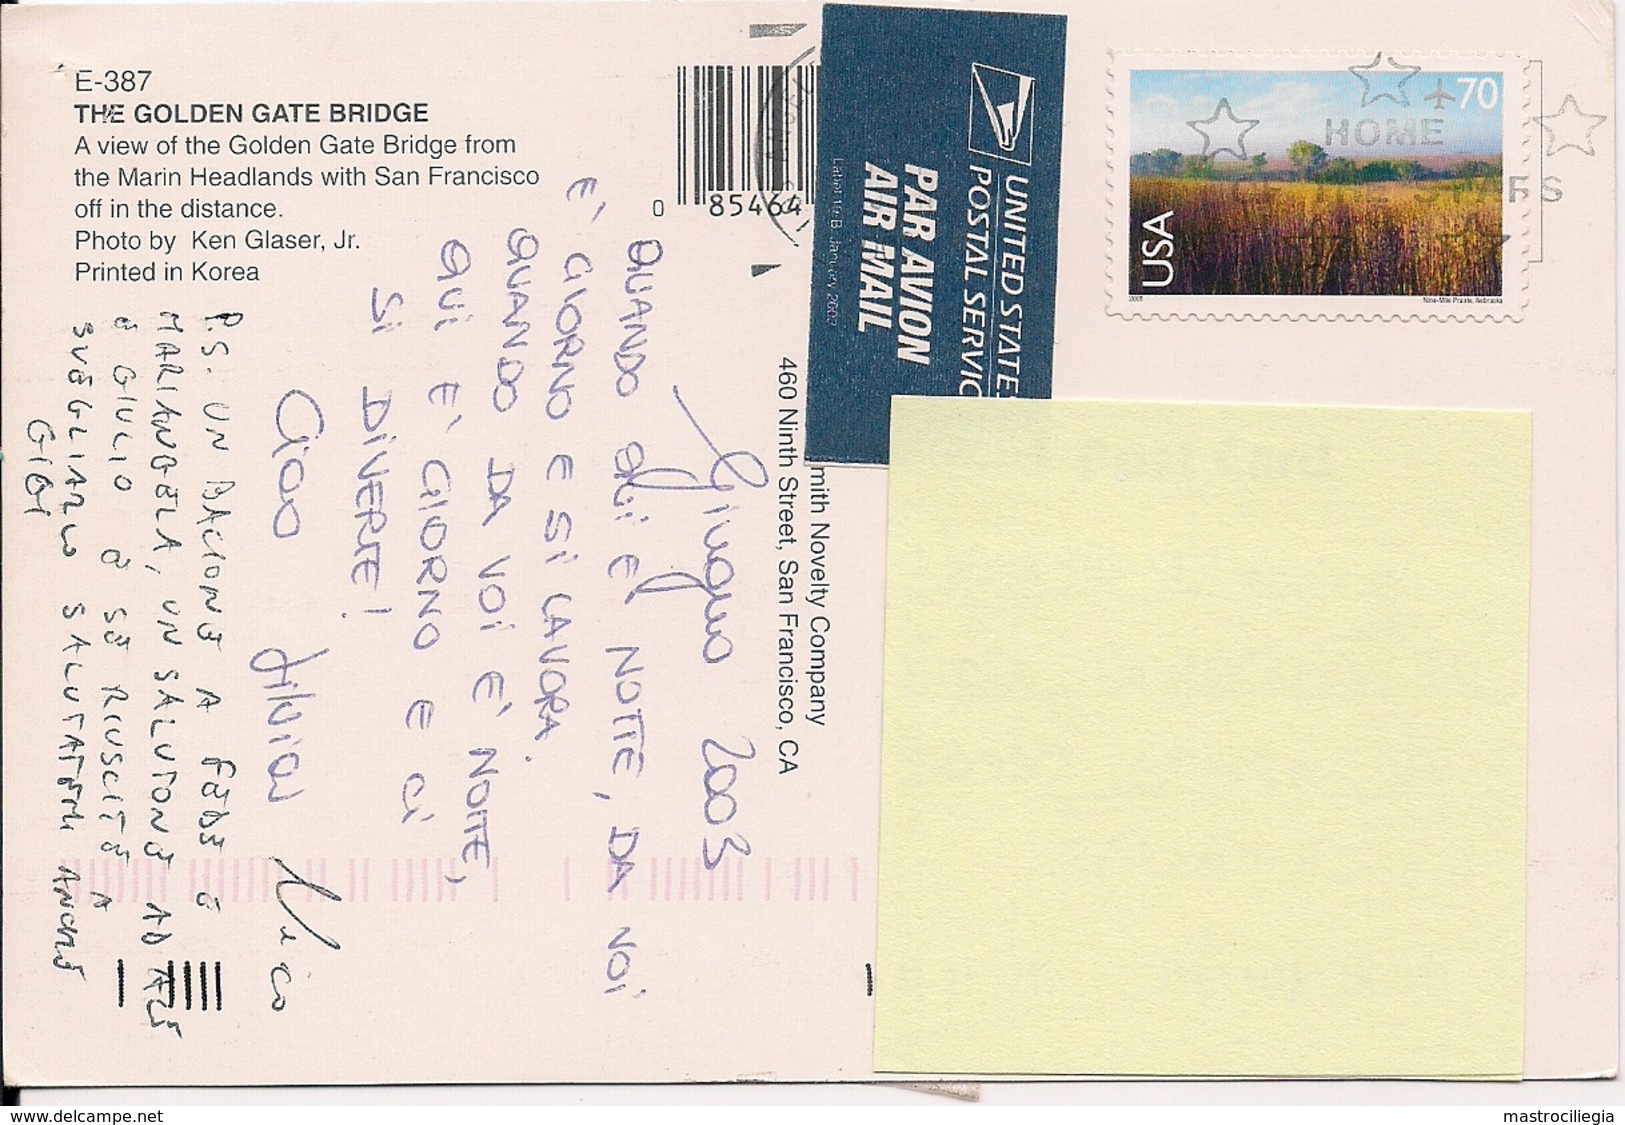 E-387
THE GOLDEN GATE BRIDGE
A view of the Golden Gate Bridge from
the Marin Headlands with San Francisco
off in the distance.
Photo by Ken Glaser, Jr.
Printed in Korea
0 85464
mith Novelty Company
460 Ninth Street, San Francisco, CA
UNITED STATES
POSTAL SERVIC
PAR AVION
AIR MAIL
Label 19-B, January 2002
70
USA
2001
Nine-Mile Prairie, Nebraska
HOME
Giugno 2003
QUANDO È NOTTE, DA NOI
E' GIORNO E SI LAVORA.
QUANDO DA VOI E' NOTTE,
QUI E' GIORNO E CI
SI DIVERTE!
Ciao Silvia
Nico
P.S. UN BACIONE A FEDE E
MARIANGELA, UN SALUTONE AD ALE
E GIULIO E SE RIUSCITE A
SVEGLIARLO SALUTATEMI ANCHE
GIGI
mastrociliegia
www.delcampe.net